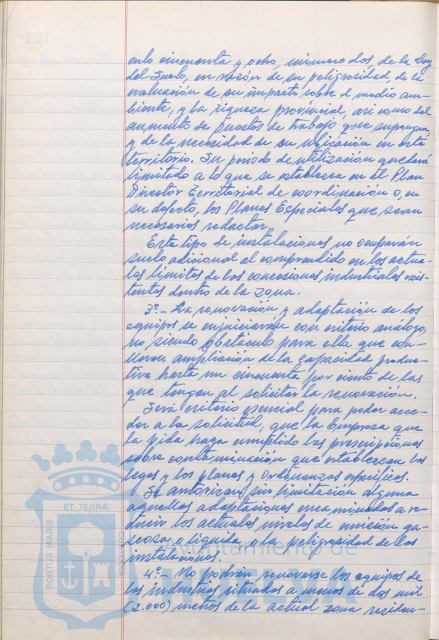 culo cincuenta y ocho, número dos, de la Ley
del Suelo, en razón de su peligrosidad, de la
evaluación de su impacto sobre el medio am-
biente, y la riqueza provincial, así como del
aumento de puestos de trabajo que suponga
y de la necesidad de su ubicación en este
territorio. Su periodo de utilización quedará
limitado a lo que se establezca en el Plan
Director Territorial de coordinación o, en
su defecto, los Planes Especiales que sean
necesarios redactar.
Este tipo de instalaciones no ocuparán
suelo adicional al comprendido en los actua-
les límites de las concesiones industriales exis-
tentes dentro de la zona.
3º.- La renovación y adaptación de los
equipos se enjuiciarán con criterio análogo,
no siendo obstáculo para ello que con-
lleven ampliación de la capacidad produc-
tiva hasta un cincuenta por ciento de las
que tengan al solicitar la renovación.
Será criterio esencial para poder acce-
der a la solicitud, que la Empresa que
la pida haya cumplido las prescripciones
sobre contaminación que establezcan las
leyes y los planes y Ordenanzas específicos.
Se autorizan, sin limitación alguna
aquellas adaptaciones encaminadas a re-
ducir los actuales niveles de emisión ga-
seosa o líquida o la peligrosidad de las
instalaciones.
4º.- No podrán renovarse los equipos de
las industrias situadas a menos de dos mil
(2.000) metros de la actual zona residen-
PORTUS MARIS
ET TERRA
Ayuntamiento de